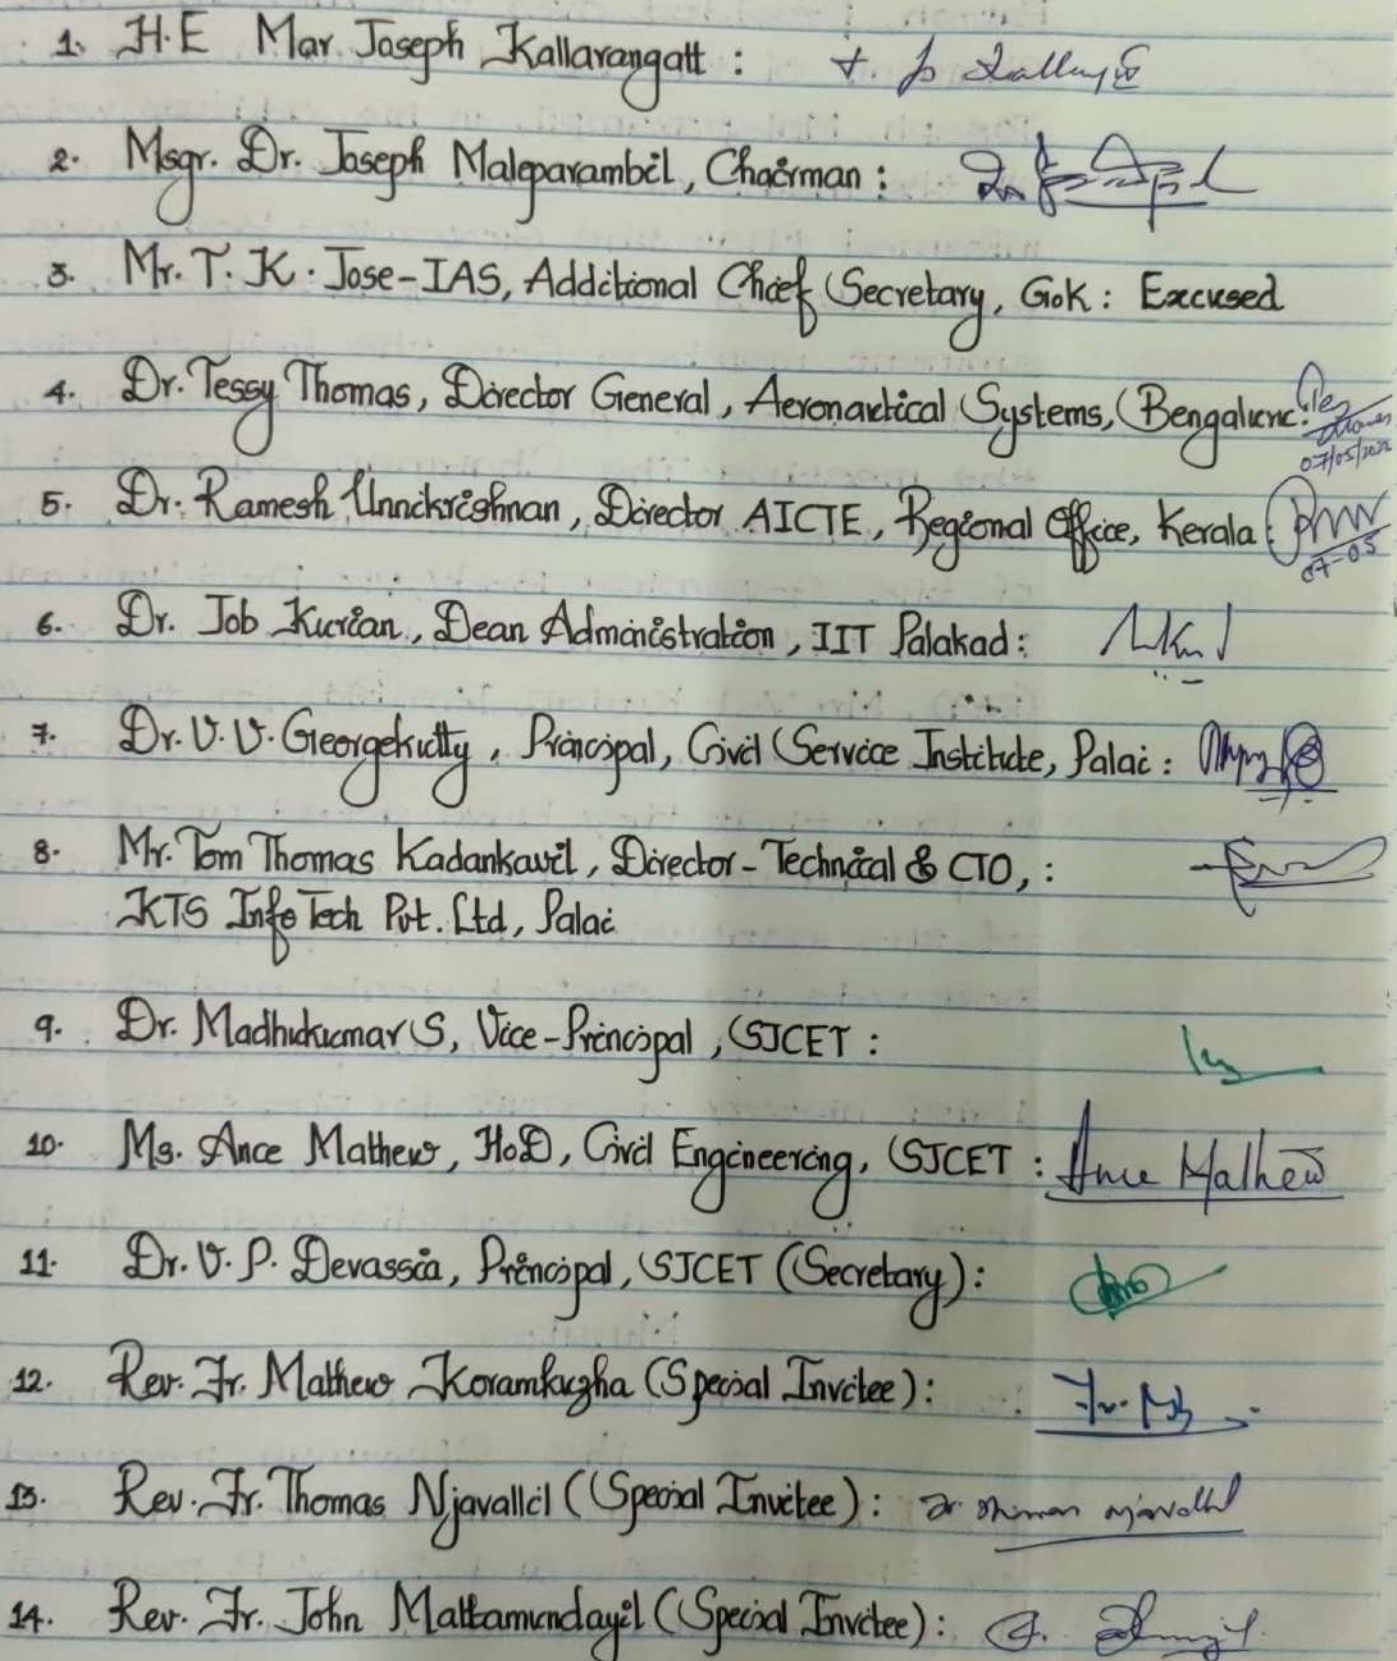 1. H.E Mar Joseph Kallarangatt :
2. Msgr. Dr. Joseph Maleparambil, Chairman :
3. Mr. T. K. Jose-IAS, Additional Chief Secretary, GoK : Excused
4. Dr. Tessy Thomas, Director General, Aeronautical Systems, Bengaluru:
07/05/2022
5. Dr. Ramesh Unnikrishnan, Director AICTE, Regional Office, Kerala :
07-05
6. Dr. Job Kurian, Dean Administration, IIT Palakad :
7. Dr. V. V. Georgekutty, Principal, Civil Service Institute, Palai :
8. Mr. Tom Thomas Kadankavil, Director - Technical & CTO, :
KTS InfoTech Pvt. Ltd, Palai
9. Dr. Madhukumar S, Vice-Principal, SJCET :
10. Ms. Ance Mathew, HoD, Civil Engineering, SJCET : Ance Mathew
11. Dr. V. P. Devassia, Principal, SJCET (Secretary) :
12. Rev. Fr. Mathew Koramkuzha (Special Invitee) :
13. Rev. Fr. Thomas Njavallil (Special Invitee) :
14. Rev. Fr. John Mattamundayil (Special Invitee) :